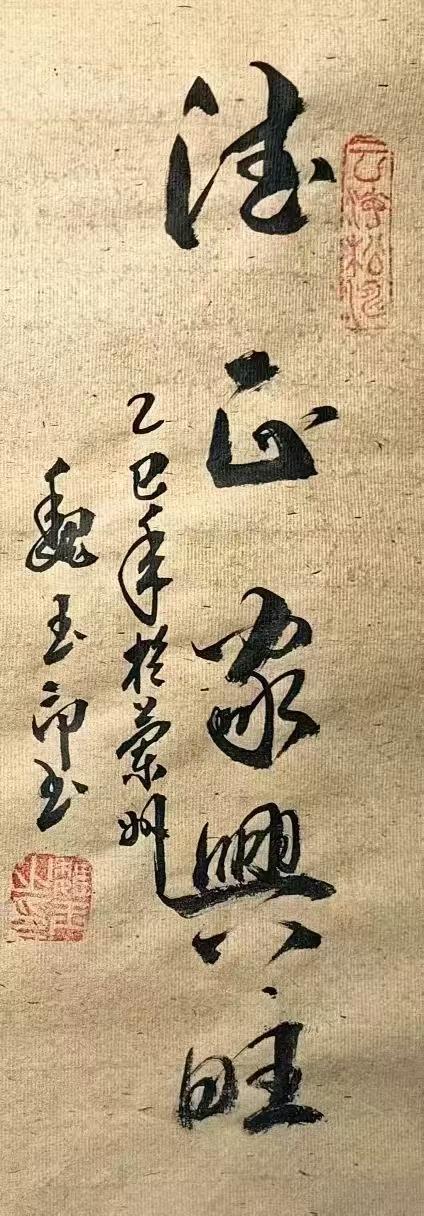 德正家興旺
乙巳年於蘭州
魏玉印书